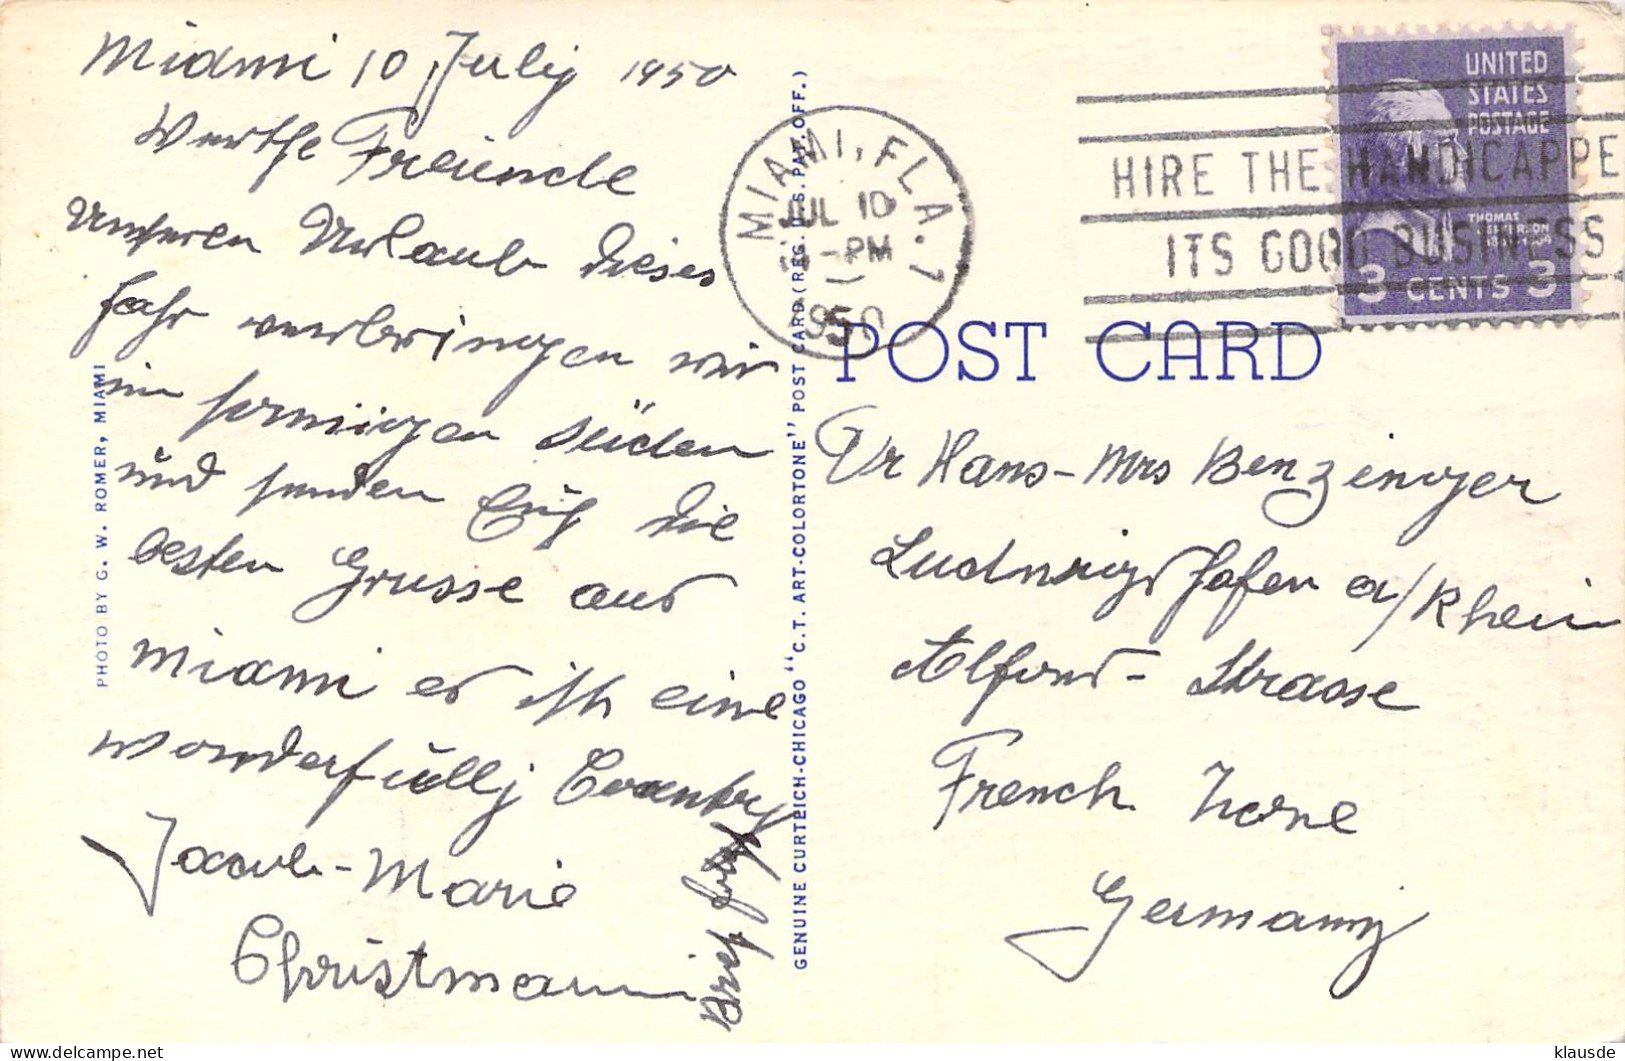 Miami 10 Julij 1950
Werthe Freünde
Unseren Urlaub dieses
Jahr verbringen wir
im sonnigen Süden
und senden Eüch die
besten Grüsse aus
Miami es ist eine
wonderfullj Country
Jacob-Marie
Christmann
Brief folgt
PHOTO BY G. W. ROMER, MIAMI
GENUINE CURTEICH-CHICAGO "C.T. ART-COLORTONE" POST CARD (REG. U.S. PAT. OFF.)
MIAMI, FLA. 1
JUL 10
PM
1950
HIRE THE HANDICAPPE
ITS GOOD BUSINESS
UNITED
STATES
POSTAGE
THOMAS
JEFFERSON
3 CENTS 3
POST CARD
Hans-Mrs Benzinger
Ludwigshafen a/Rhein
Strasse
French Zone
Germany
klausde
delcampe.net